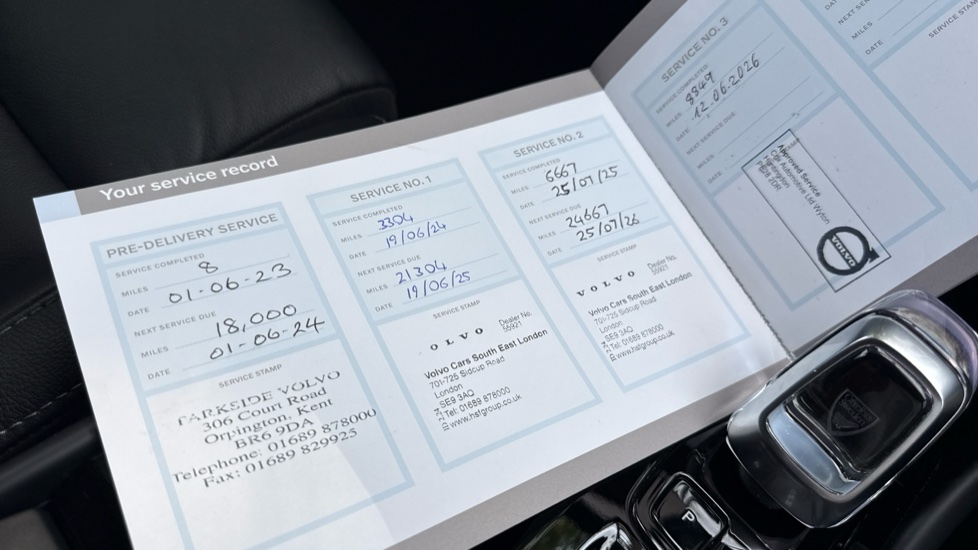 Your service record
PRE-DELIVERY SERVICE
SERVICE COMPLETED
MILES 8
DATE 01-06-23
NEXT SERVICE DUE
MILES 18,000
DATE 01-06-24
SERVICE STAMP
PARKSIDE VOLVO
306 Court Road
Orpington, Kent
BR6 9DA
Telephone: 01689 878000
Fax: 01689 829925
SERVICE NO. 1
SERVICE COMPLETED
MILES 3304
DATE 19/06/24
NEXT SERVICE DUE
MILES 21304
DATE 19/06/25
SERVICE STAMP
VOLVO
Dealer No.
55921
Volvo Cars South East London
701-725 Sidcup Road
London
SE9 3AQ
Tel: 01689 878000
www.hsfgroup.co.uk
SERVICE NO. 2
SERVICE COMPLETED
MILES 6667
DATE 25/07/25
NEXT SERVICE DUE
MILES 24667
DATE 25/07/26
SERVICE STAMP
VOLVO
Dealer No.
55921
Volvo Cars South East London
701-725 Sidcup Road
London
SE9 3AQ
Tel: 01689 878000
www.hsfgroup.co.uk
SERVICE NO. 3
SERVICE COMPLETED
MILES 8849
DATE 12.06.2026
NEXT SERVICE DUE
MILES
DATE
Approved Service
Automotive Ltd Wyton
Huntingdon
PE28 2DR
VOLVO
DATE
NEXT SERVICE
MILES
DATE
SERVICE STAMP
P